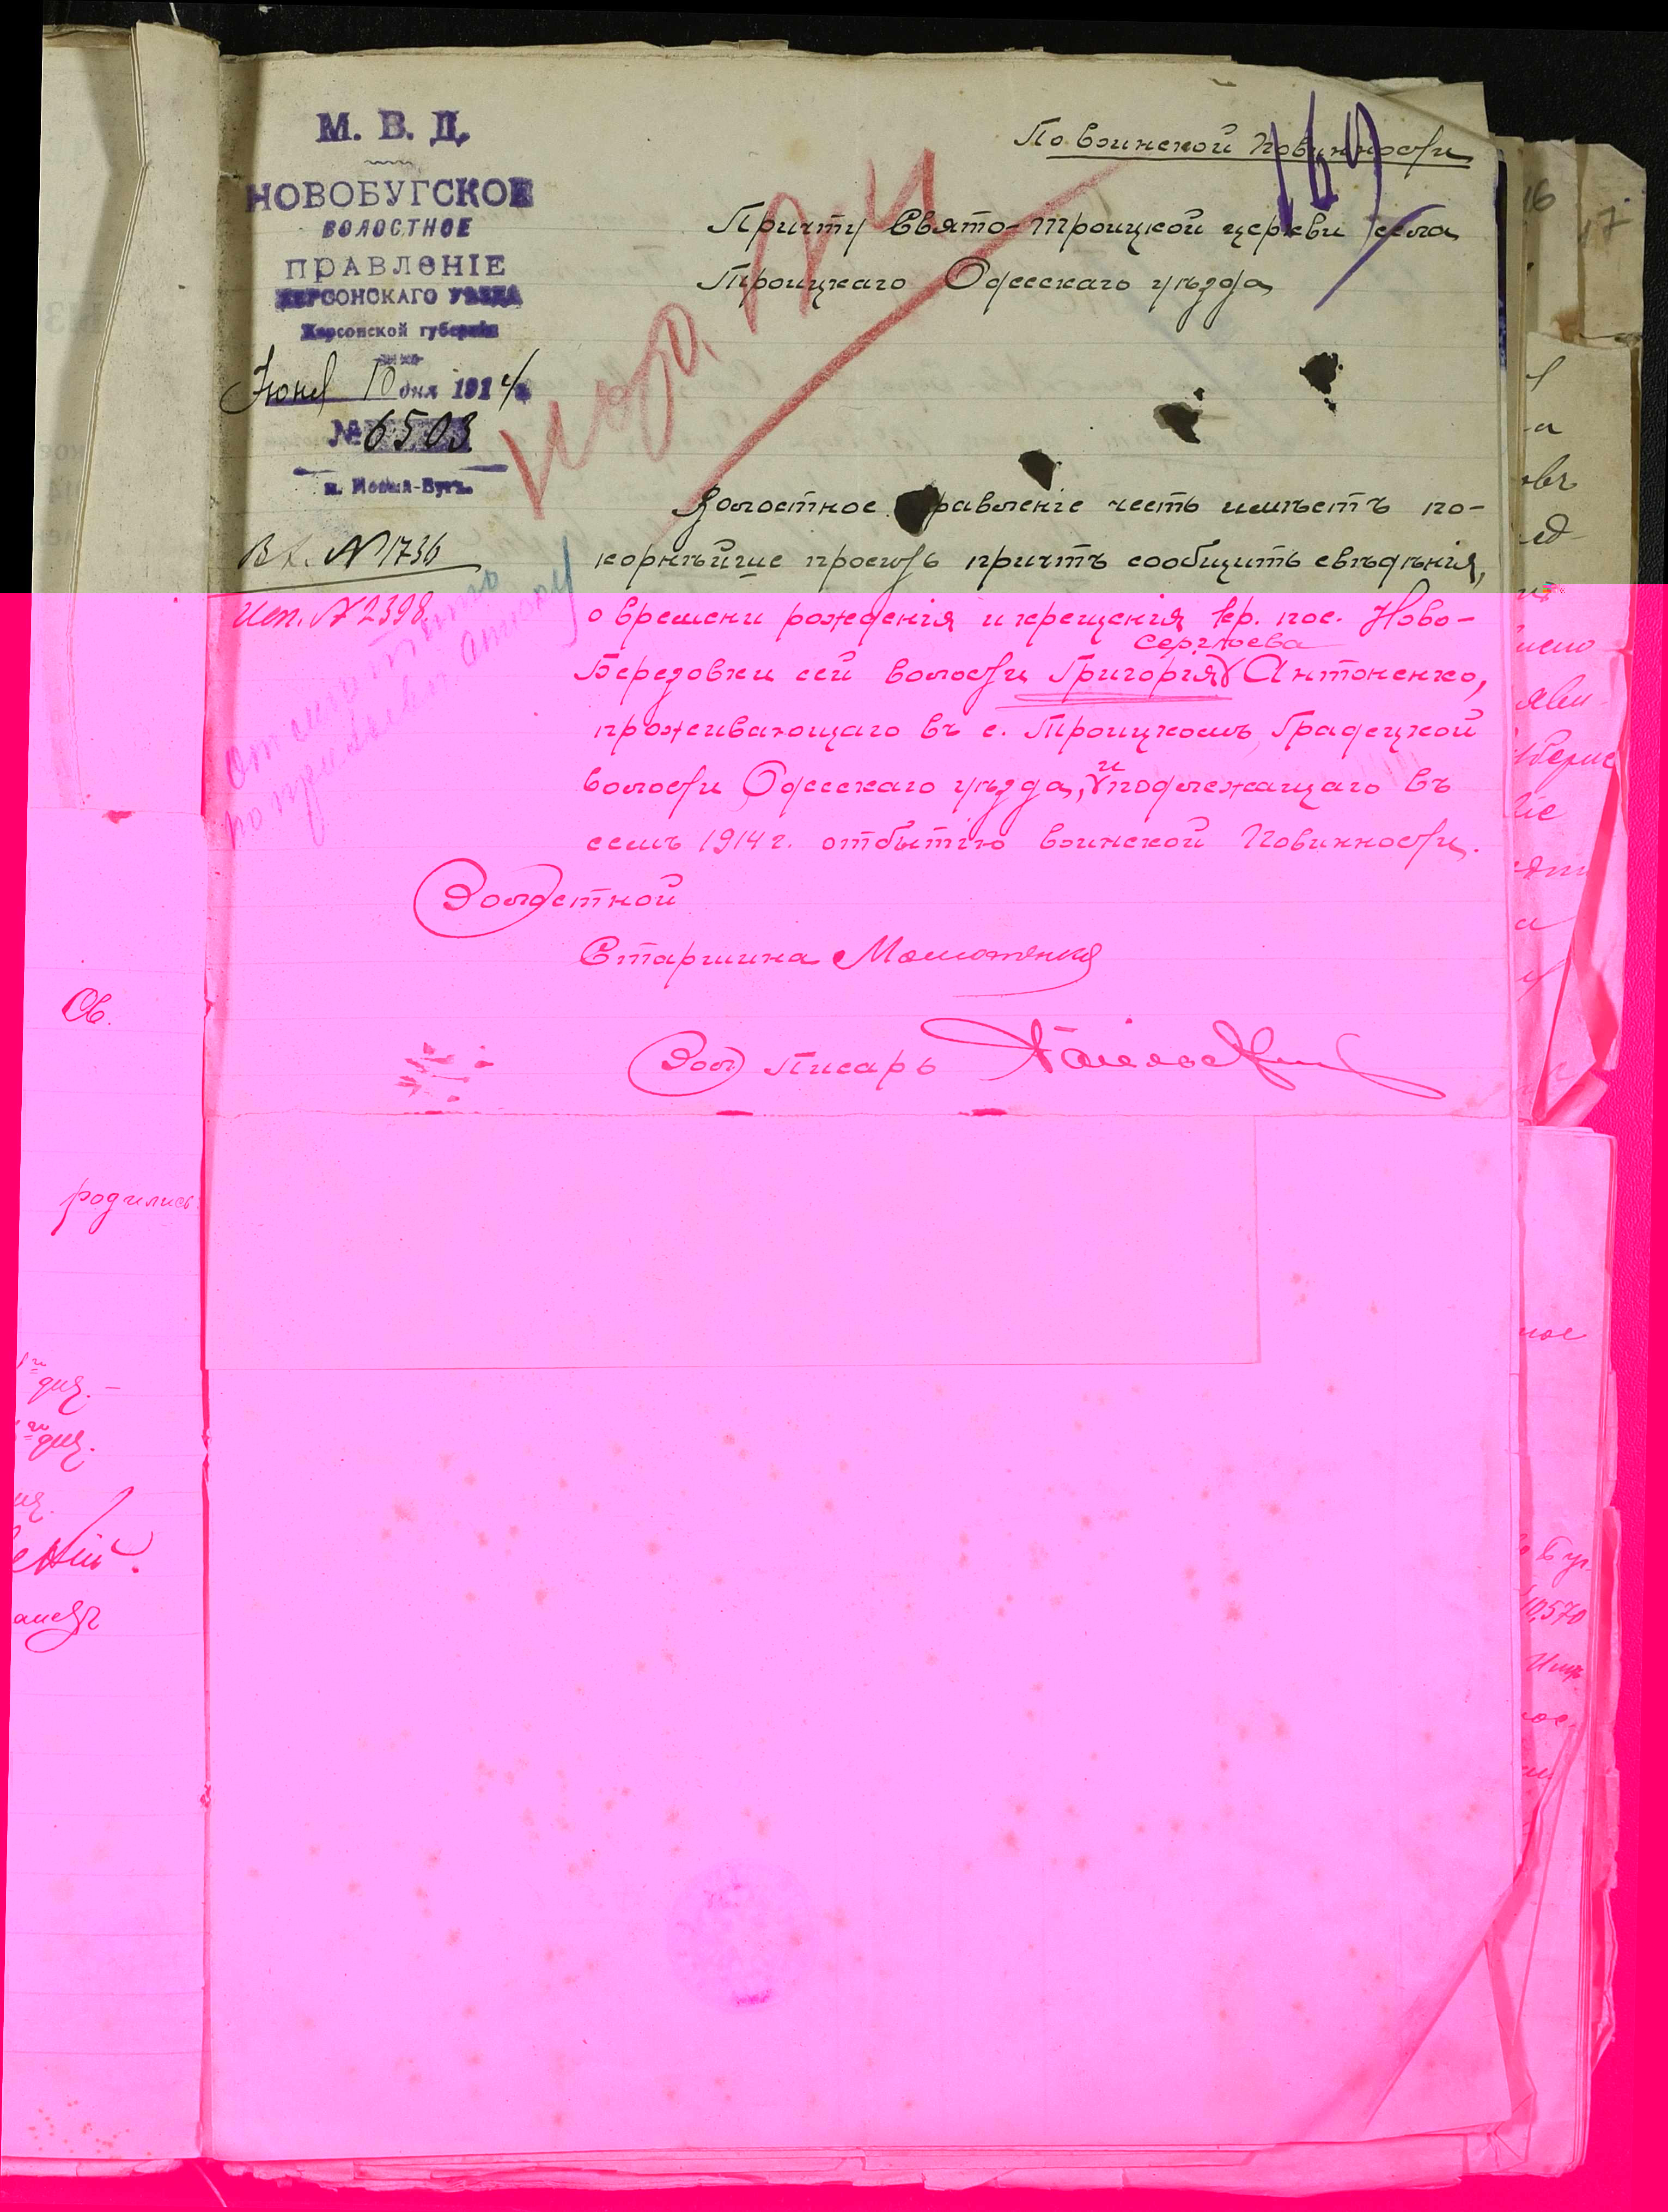 М. В. Д.
НОВОБУГСКОЕ
ВОЛОСТНОЕ
ПРАВЛЕНІЕ
ХЕРСОНСКАГО УѢЗДА
Херсонской губерніи
Іюня 10 дня 1914 г.
№ 6503
м. Новый-Бугъ.
Вх. № 1736
Исп. № 2398.
По воинской повинности
169
Причту Свято-Троицкой церкви села
Троицкаго Одесскаго уѣзда
Волостное правленіе честь имѣетъ по-
корнѣйше просить причтъ сообщить свѣдѣнія,
о времени рожденія и крещенія кр. пос. Ново-
Сергѣева
Березовки сей волости Григорія Антоненко,
проживающаго въ с. Троицкомъ, Градецкой
волости Одесскаго уѣзда, и подлежащаго въ
семъ 1914 г. отбытію воинской повинности.
Волостной
Старшина
Вол Писарь
Ов.
родились
го дня. —
го дня.
10,570